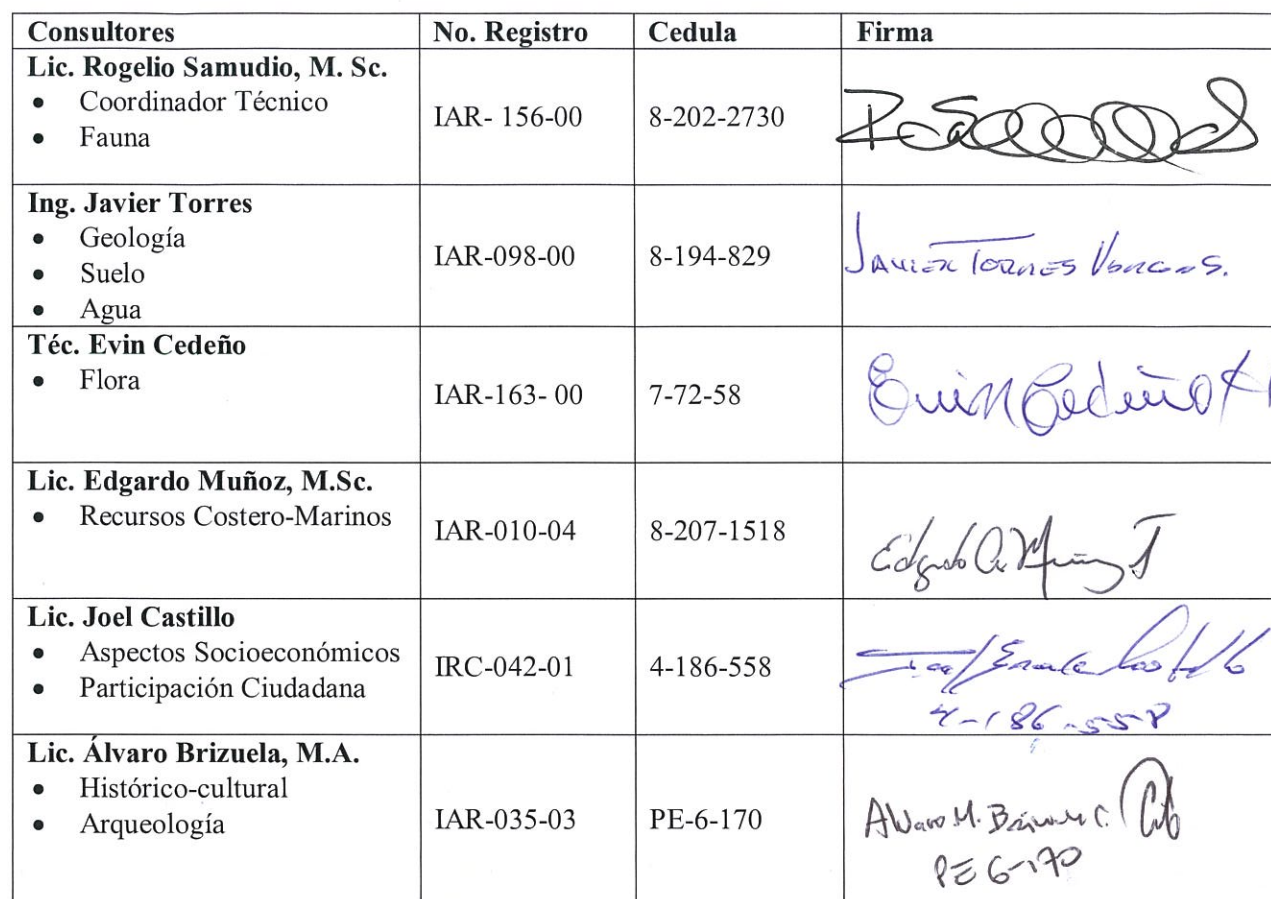 Consultores No. Registro Cedula Firma
Lic. Rogelio Samudio, M. Sc.
• Coordinador Técnico
• Fauna
IAR- 156-00 8-202-2730
Ing. Javier Torres
• Geología
• Suelo
• Agua
IAR-098-00 8-194-829 JAVIER TORRES VARGAS.
Téc. Evin Cedeño
• Flora
IAR-163- 00 7-72-58 Evin Cedeño H
Lic. Edgardo Muñoz, M.Sc.
• Recursos Costero-Marinos
IAR-010-04 8-207-1518 Edgardo A. Muñoz J
Lic. Joel Castillo
• Aspectos Socioeconómicos
• Participación Ciudadana
IRC-042-01 4-186-558 Castillo
4-186-558
Lic. Álvaro Brizuela, M.A.
• Histórico-cultural
• Arqueología
IAR-035-03 PE-6-170 Alvaro M. Brizuela C.
PE 6-170